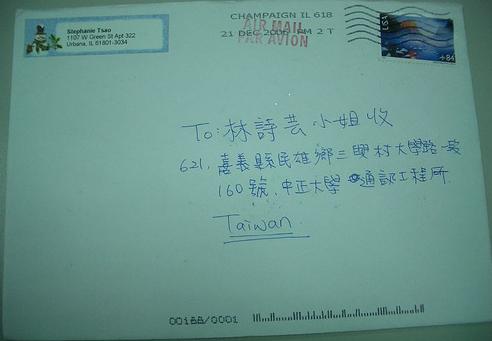 Stephanie Tsao
1107 W Green St Apt 322
Urbana, IL 61801-3034
CHAMPAIGN IL 618
AIR MAIL
PAR AVION
21 DEC 2006 PM 2 T
USA
84
To: 林詩芸小姐收
621, 嘉義縣民雄鄉三興村大學路一段
160號, 中正大學 通訊工程所
Taiwan
001BB/0001